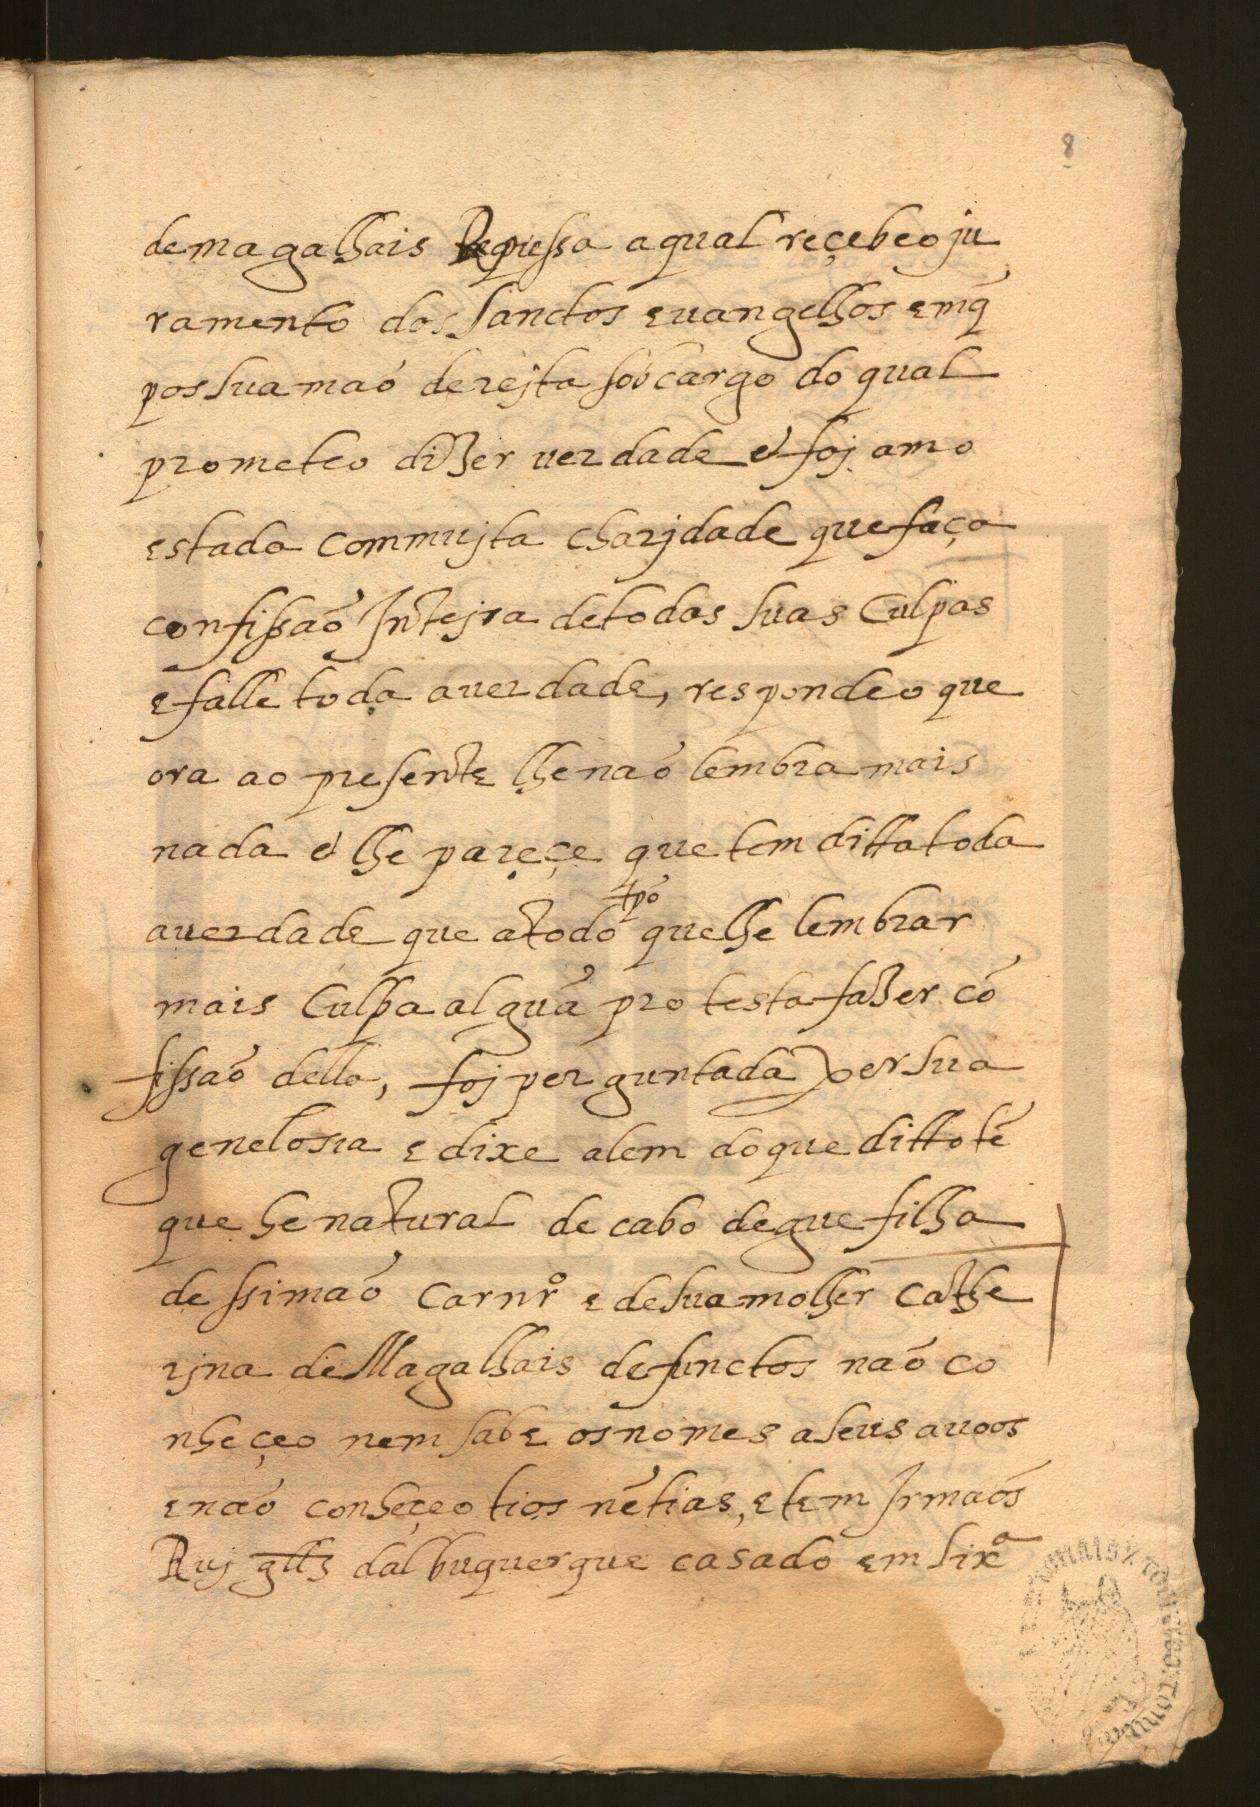 8
de magalhais Repussa a qual reçebeo ju
ramento dos Sanctos euangelhos em q̃
pos sua maõ derejta sob cargo do qual
prometeo dizer verdade e foj amo
estada com mujta charjdade que faça
confissaõ Intejra de todas suas Culpas
e falle toda a uerdade, respondeo que
ora ao presente lhe naõ lembra mais
nada e lhe pareçe que tem ditta toda
a uerdade que a todo tpõ que lhe lembrar
mais Culpa algũa protesta fazer cõ
fissaõ della, foj perguntada per sua
genelosia e dixe alem do que ditto tẽ
que he natural de cabo de gue filha
de ssimaõ Carnrº e de sua molher Cathe
rjna de Magalhais defunctos naõ co
nheçeo nem sabe os nomes a seus auoos
e naõ conheçeo tios nẽ tias, e tem Irmaõs
Ruj glz dalbuquerque casado em lixª